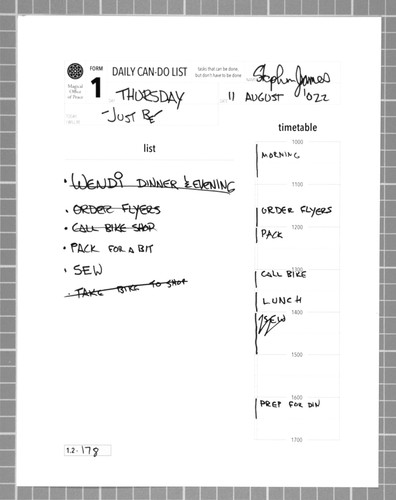 Magical
Office
of Peace
FORM
1
DAILY CAN-DO LIST
tasks that can be done,
but don't have to be done
Stephen James
THURSDAY
11 AUGUST '022
-JUST BE
list
timetable
• WENDI DINNER & EVENING
• ORDER FLYERS
• CALL BIKE SHOP
• PACK FOR A BIT
• SEW
• TAKE BIKE TO SHOP
1000
MORNING
1100
ORDER FLYERS
1200
PACK
1300
CALL BIKE
LUNCH
1400
SEW
1500
1600
PREP FOR DIN
1700
1.2- 178